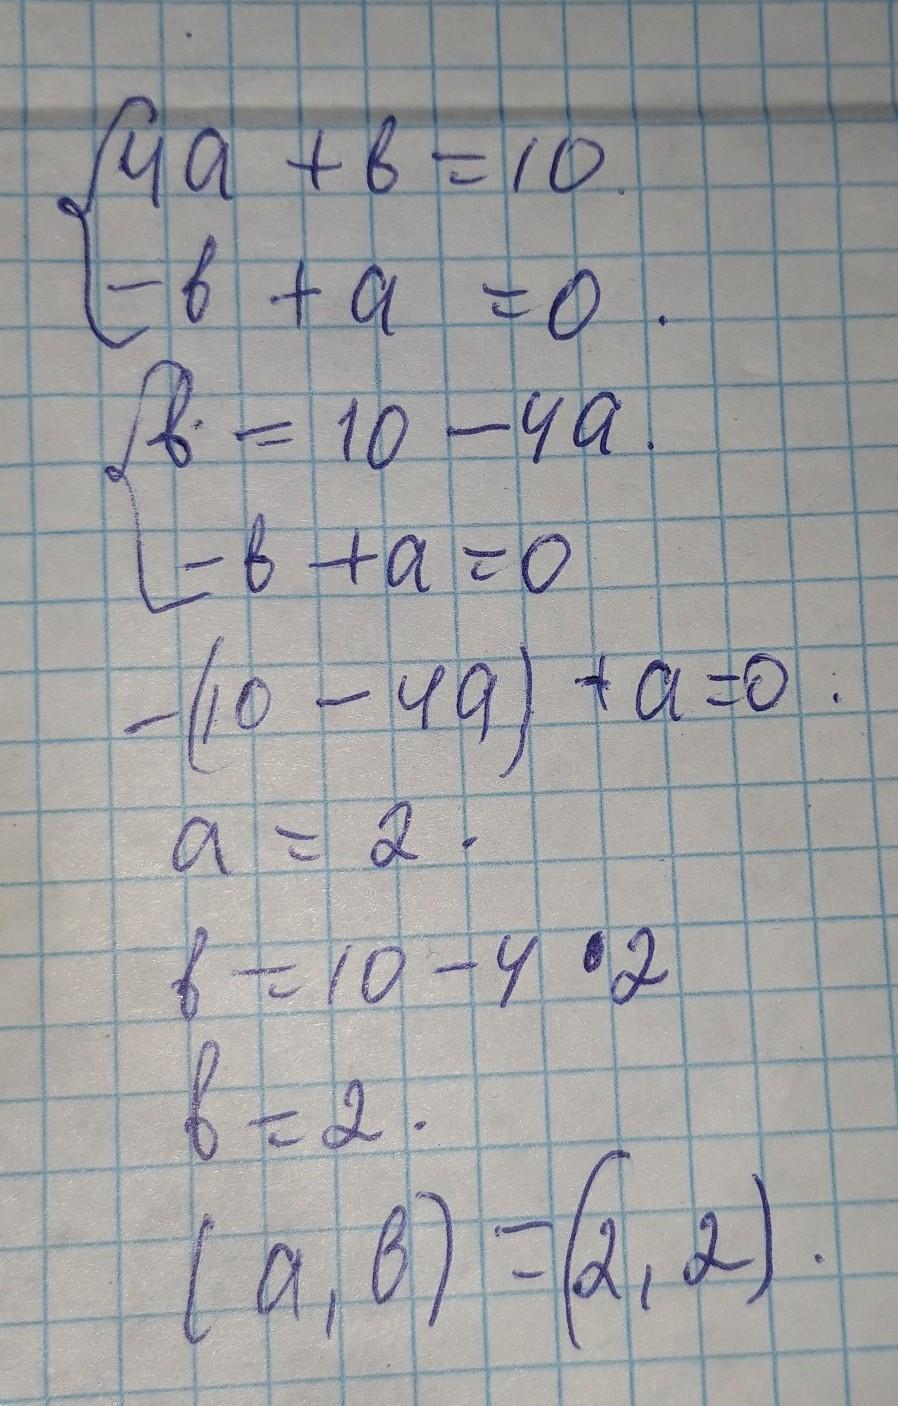 {4a + b = 10.
-b + a = 0.
{b = 10 - 4a.
-b + a = 0
-(10 - 4a) + a = 0.
a = 2.
b = 10 - 4 • 2
b = 2.
(a, b) = (2, 2).